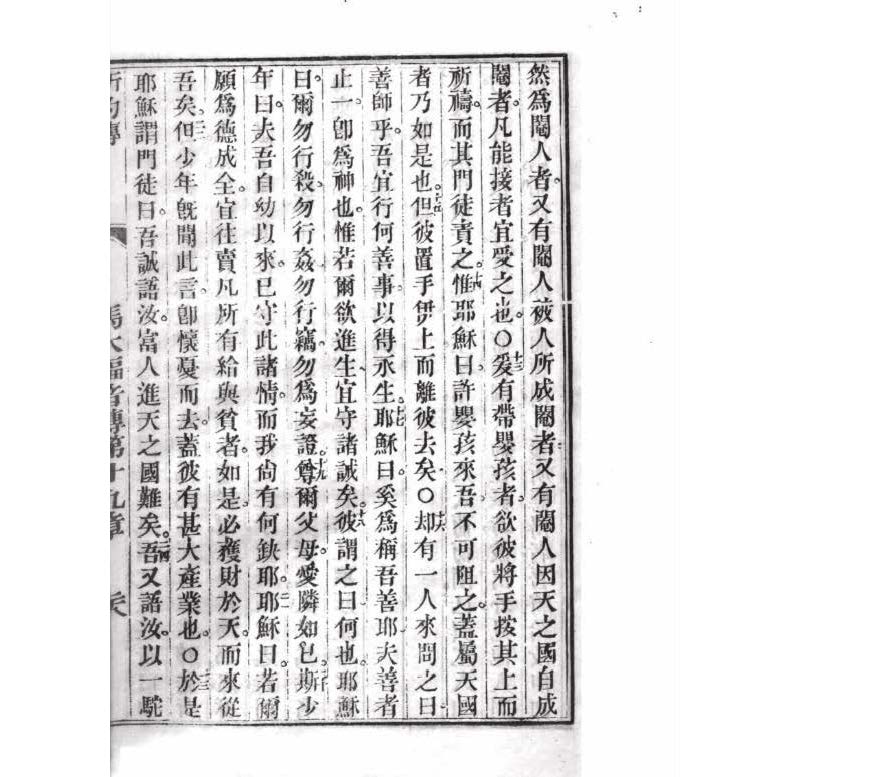 然爲閹人者又有閹人被人所成閹者又有閹人因天之國自成
閹者。凡能接者宜愛之也。〇十三爰有帶嬰孩者。欲彼將手按其上而
祈禱。而其門徒責之。十四惟耶穌曰許嬰孩來吾不可阻之。蓋屬天國
者乃如是也。十五但彼置手其上而離彼去矣〇十六却有一人來問之曰
善師乎。吾宜行何善事。以得永生。十七耶穌曰。奚爲稱吾善耶夫善者
止一。卽爲神也。惟若爾欲進生宜守諸誡矣。十八彼謂之曰何也。耶穌
曰。爾勿行殺。勿行姦勿行竊。勿爲妄證。十九尊爾父母。愛隣如己。二十斯少
年曰。夫吾自幼以來。已守此諸情。而我尙有何缺耶。耶穌曰。若爾
願爲德成全。宜往賣凡所有給與貧者。如是。必獲財於天。而來從
吾矣。但少年旣聞此言。卽懷憂而去。蓋彼有甚大產業也。〇於是
耶穌謂門徒曰。吾誠語汝。富人進天之國難矣。吾又語汝。以一駝
馬太福音傳第十九章